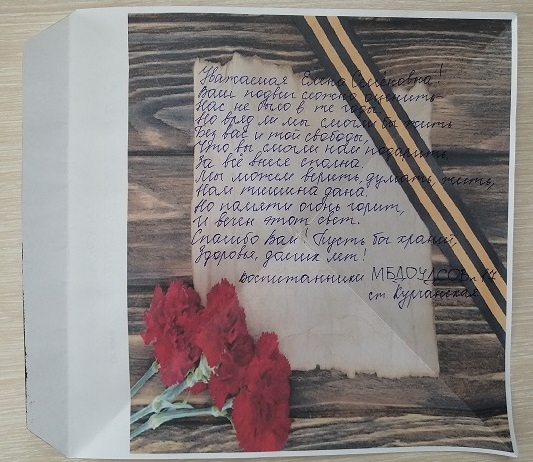 Уважаемая Елена Семёновна!
Ваш подвиг сложно оценить
Нас не было в те годы.
Но вряд ли мы смогли бы жить
Без вас и той свободы,
Что вы смогли нам подарить,
За всё внеся сполна.
Мы можем верить, думать, жить,
Нам тишина дана.
Но памяти огонь горит,
И вечен этот свет.
Спасибо Вам! Пусть бог хранит,
Здоровья, долгих лет!
Воспитанники 17
ст. Курганская